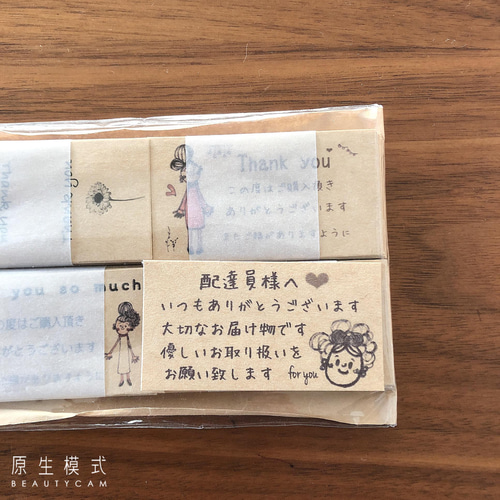 Thank you
この度はご購入頂き
ありがとうございます
またご縁がありますように
you so much
の度はご購入頂き
がとうございます
配達員様へ
いつもありがとうございます
大切なお届け物です
優しいお取り扱いを
お願い致します for you
原生模式
BEAUTYCAM